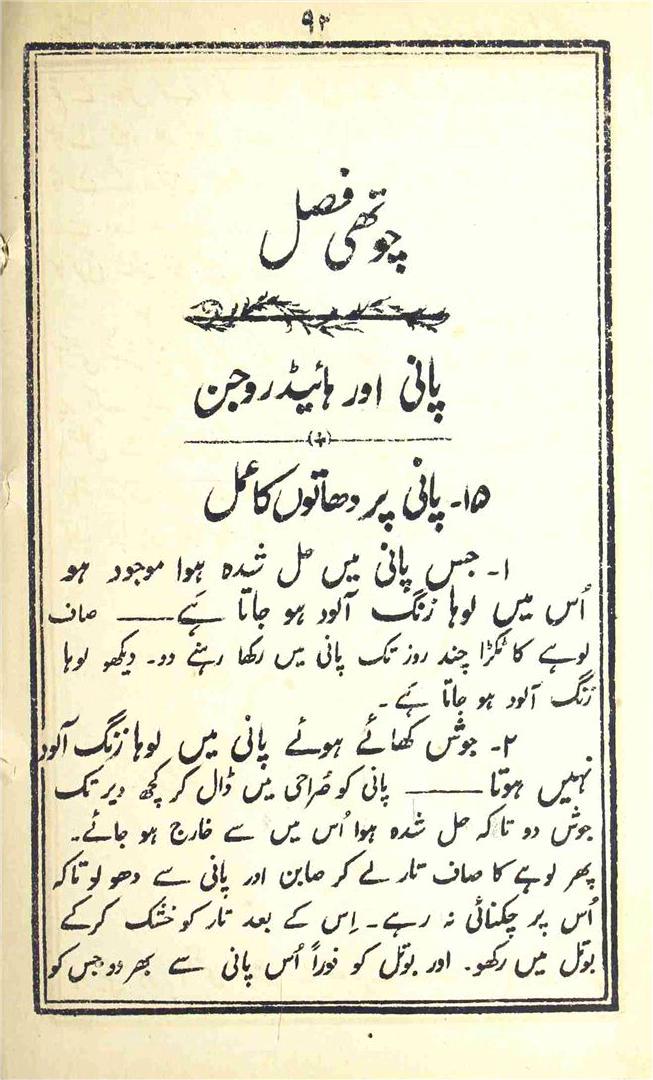 ۹۳
چوتھی فصل
پانی اور ہائیڈروجن
۱۵۔ پانی پر دھاتوں کا عمل
۱۔ جس پانی میں حل شدہ ہوا موجود ہو
اُس میں لوہا زنگ آلود ہو جاتا ہے —— صاف
لوہے کا ٹکڑا چند روز تک پانی میں رکھا رہنے دو۔ دیکھو لوہا
زنگ آلود ہو جاتا ہے۔
۲۔ جوش کھائے ہوئے پانی میں لوہا زنگ آلود
نہیں ہوتا —— پانی کو صراحی میں ڈال کر کچھ دیر تک
جوش دو تاکہ حل شدہ ہوا اُس میں سے خارج ہو جائے۔
پھر لوہے کا صاف تار لے کر صابن اور پانی سے دھو لو تاکہ
اُس پر چکنائی نہ رہے۔ اِس کے بعد تار کو خشک کرکے
بوتل میں رکھو۔ اور بوتل کو فوراً اُس پانی سے بھر دو جس کو